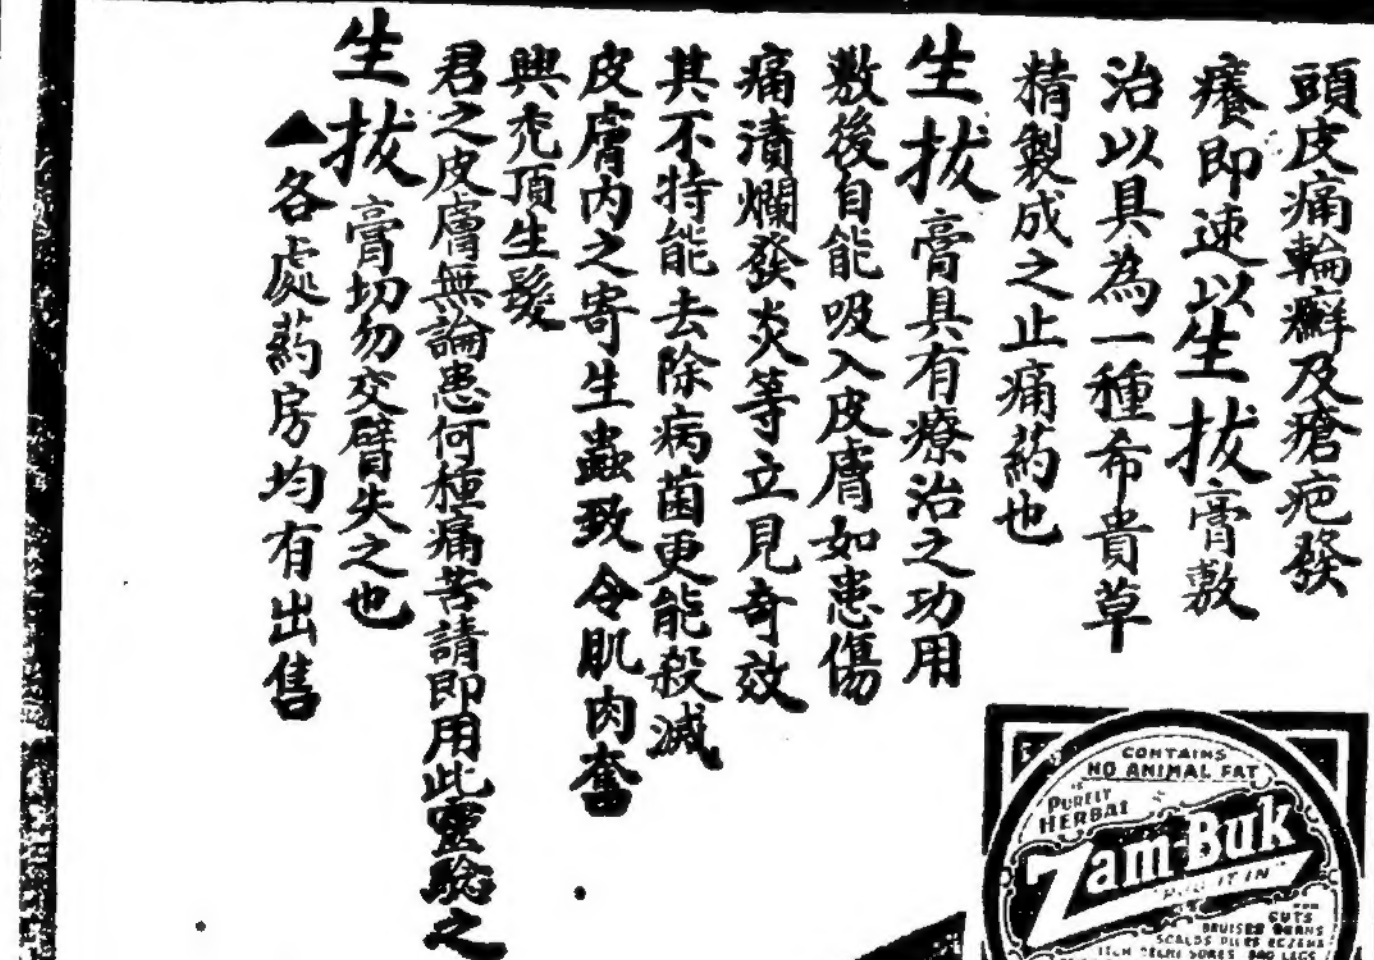 頭皮痛輪癬及瘡疤發
癢即速以生拔膏敷
治以其為一種希貴草
精製成之止痛药也
生拔膏具有療治之功用
敷後自能吸入皮膚如患傷
痛潰爛發炎等立見奇效
其不特能去除病菌更能殺滅
皮膚内之寄生蟲致令肌肉奮
興禿頂生髮
君之皮膚無論患何種痛苦請即用此靈驗之
生拔膏切勿交臂失之也
▲各處药房均有出售
CONTAINS
NO ANIMAL FAT
PURELY
HERBAL
Zam-Buk
"RUB IT IN"
FOR
CUTS
BRUISES BURNS
SCALDS PILES ECZEMA
ITCH SORES BAD LEGS